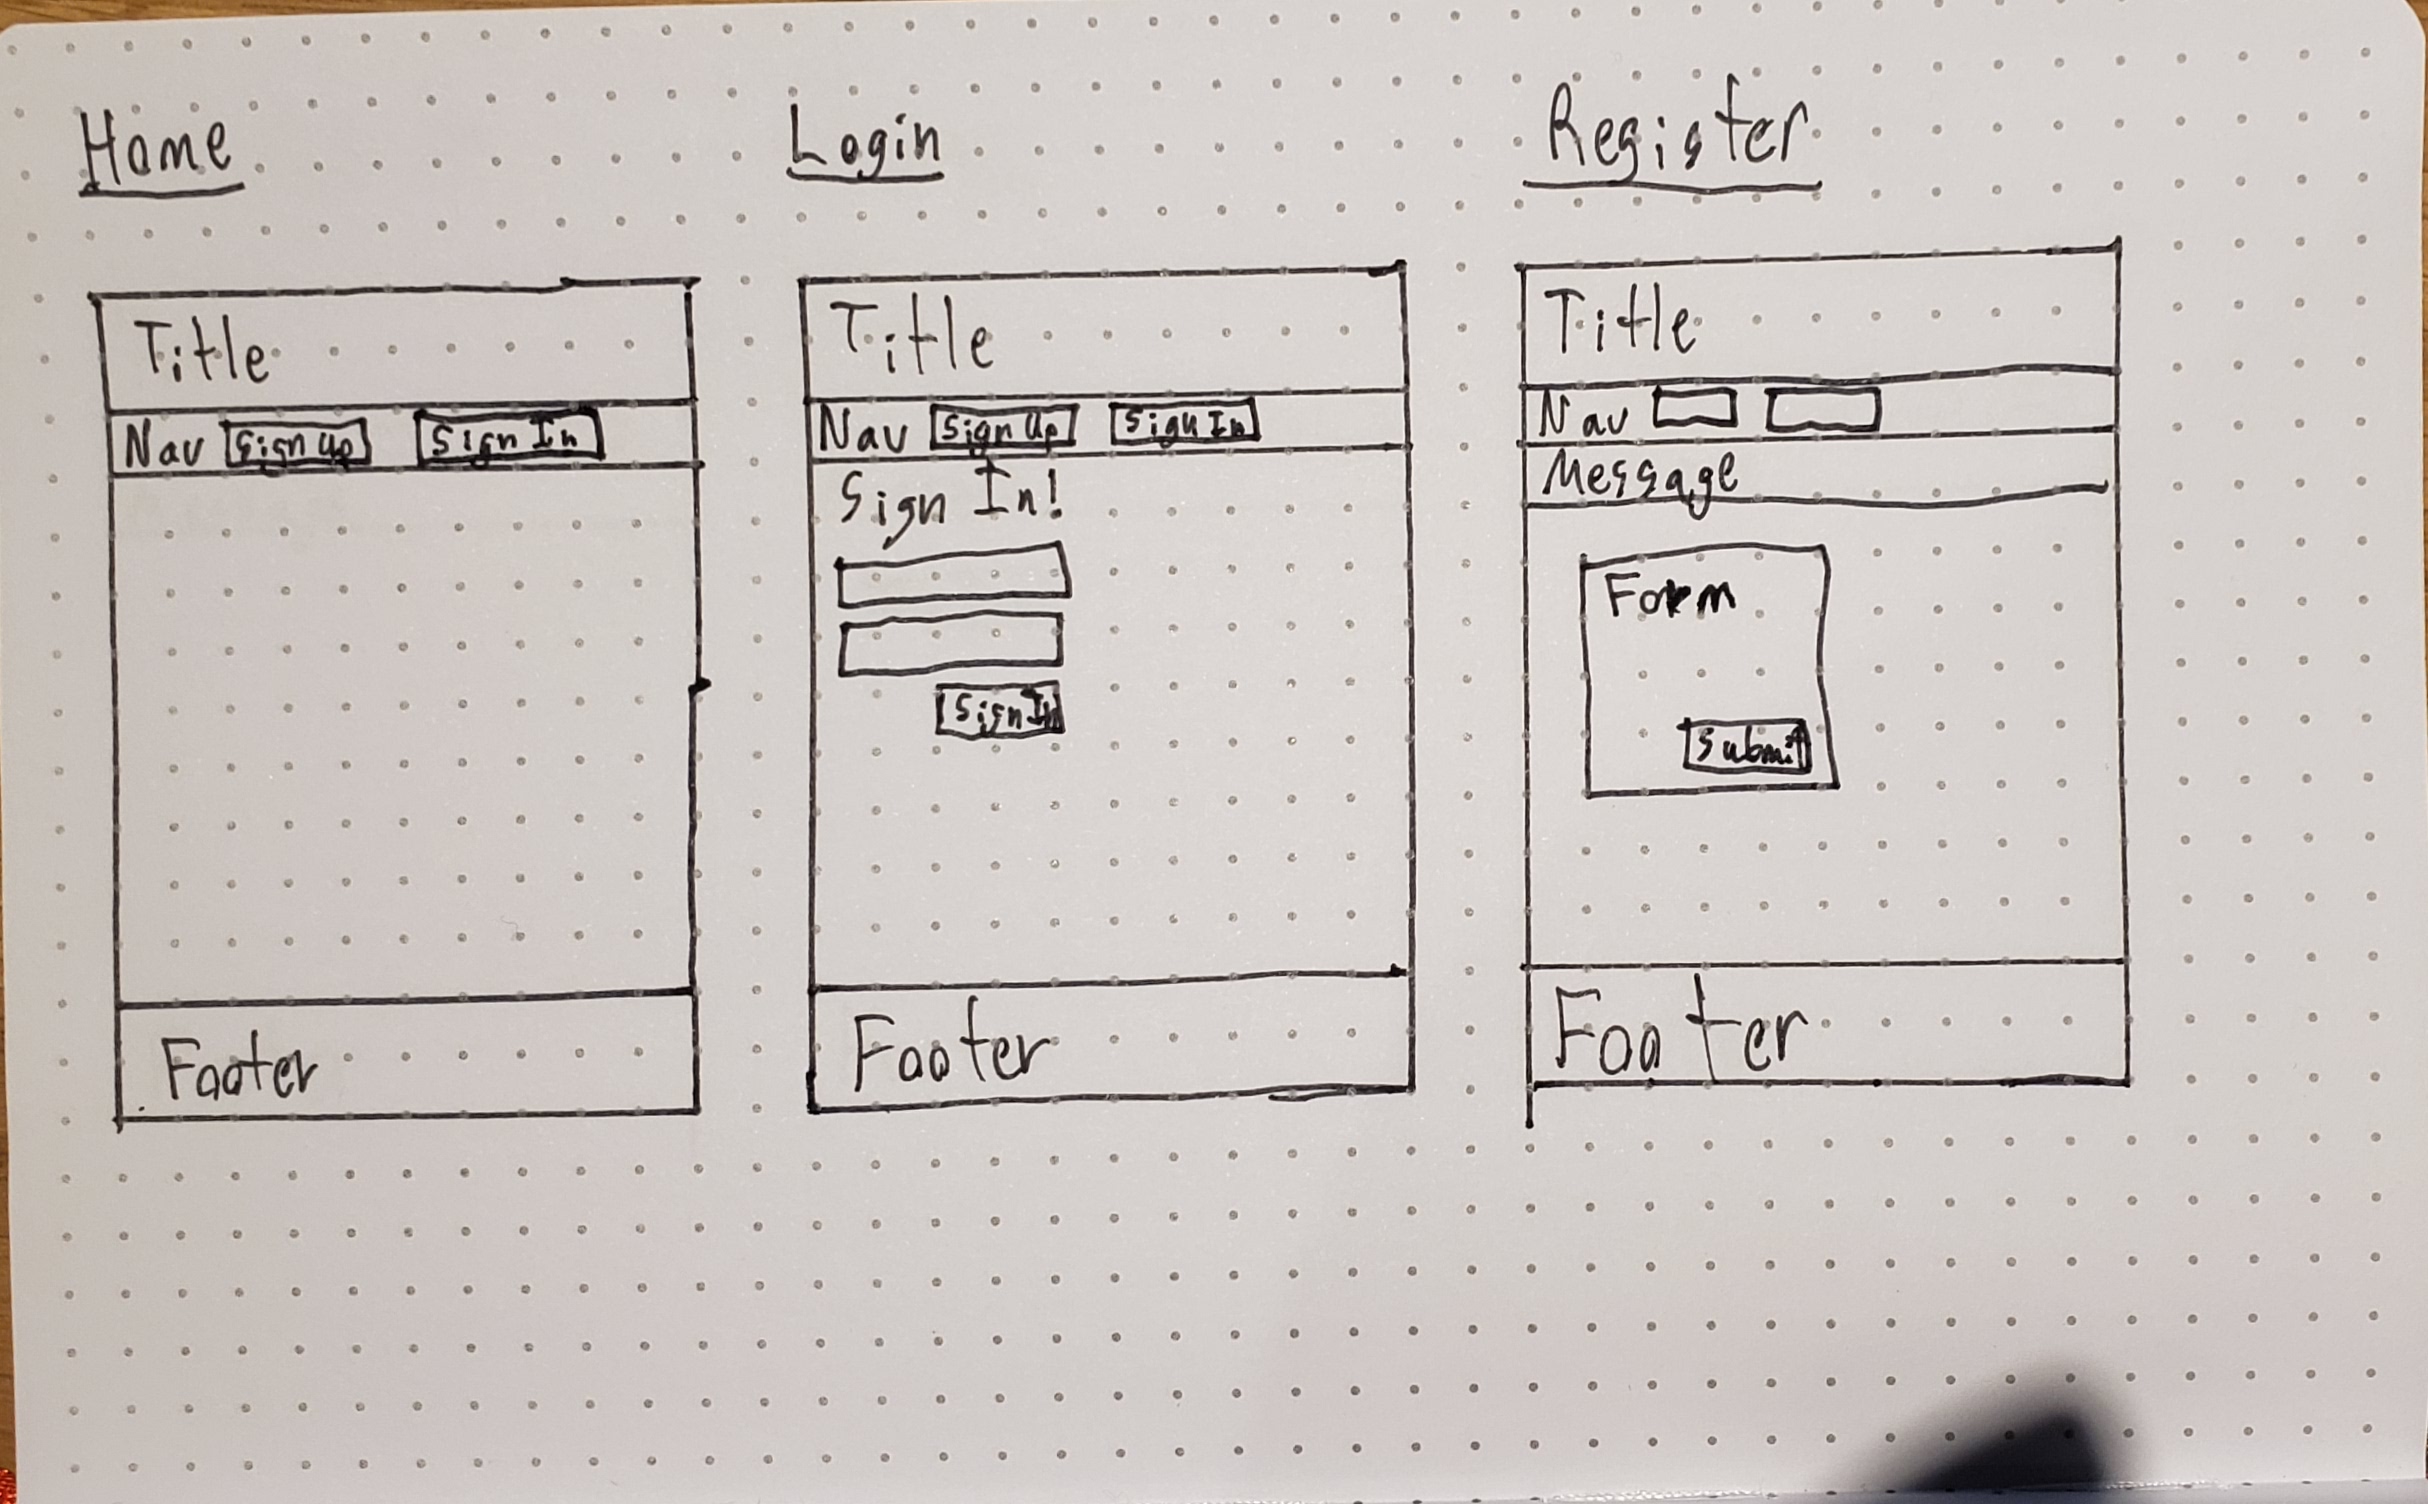 Home
Title
Nav Sign up Sign In
Footer
Login
Title
Nav Sign Up Sign In
Sign In!
Sign In
Footer
Register
Title
Nav
Message
Form
Submit
Footer